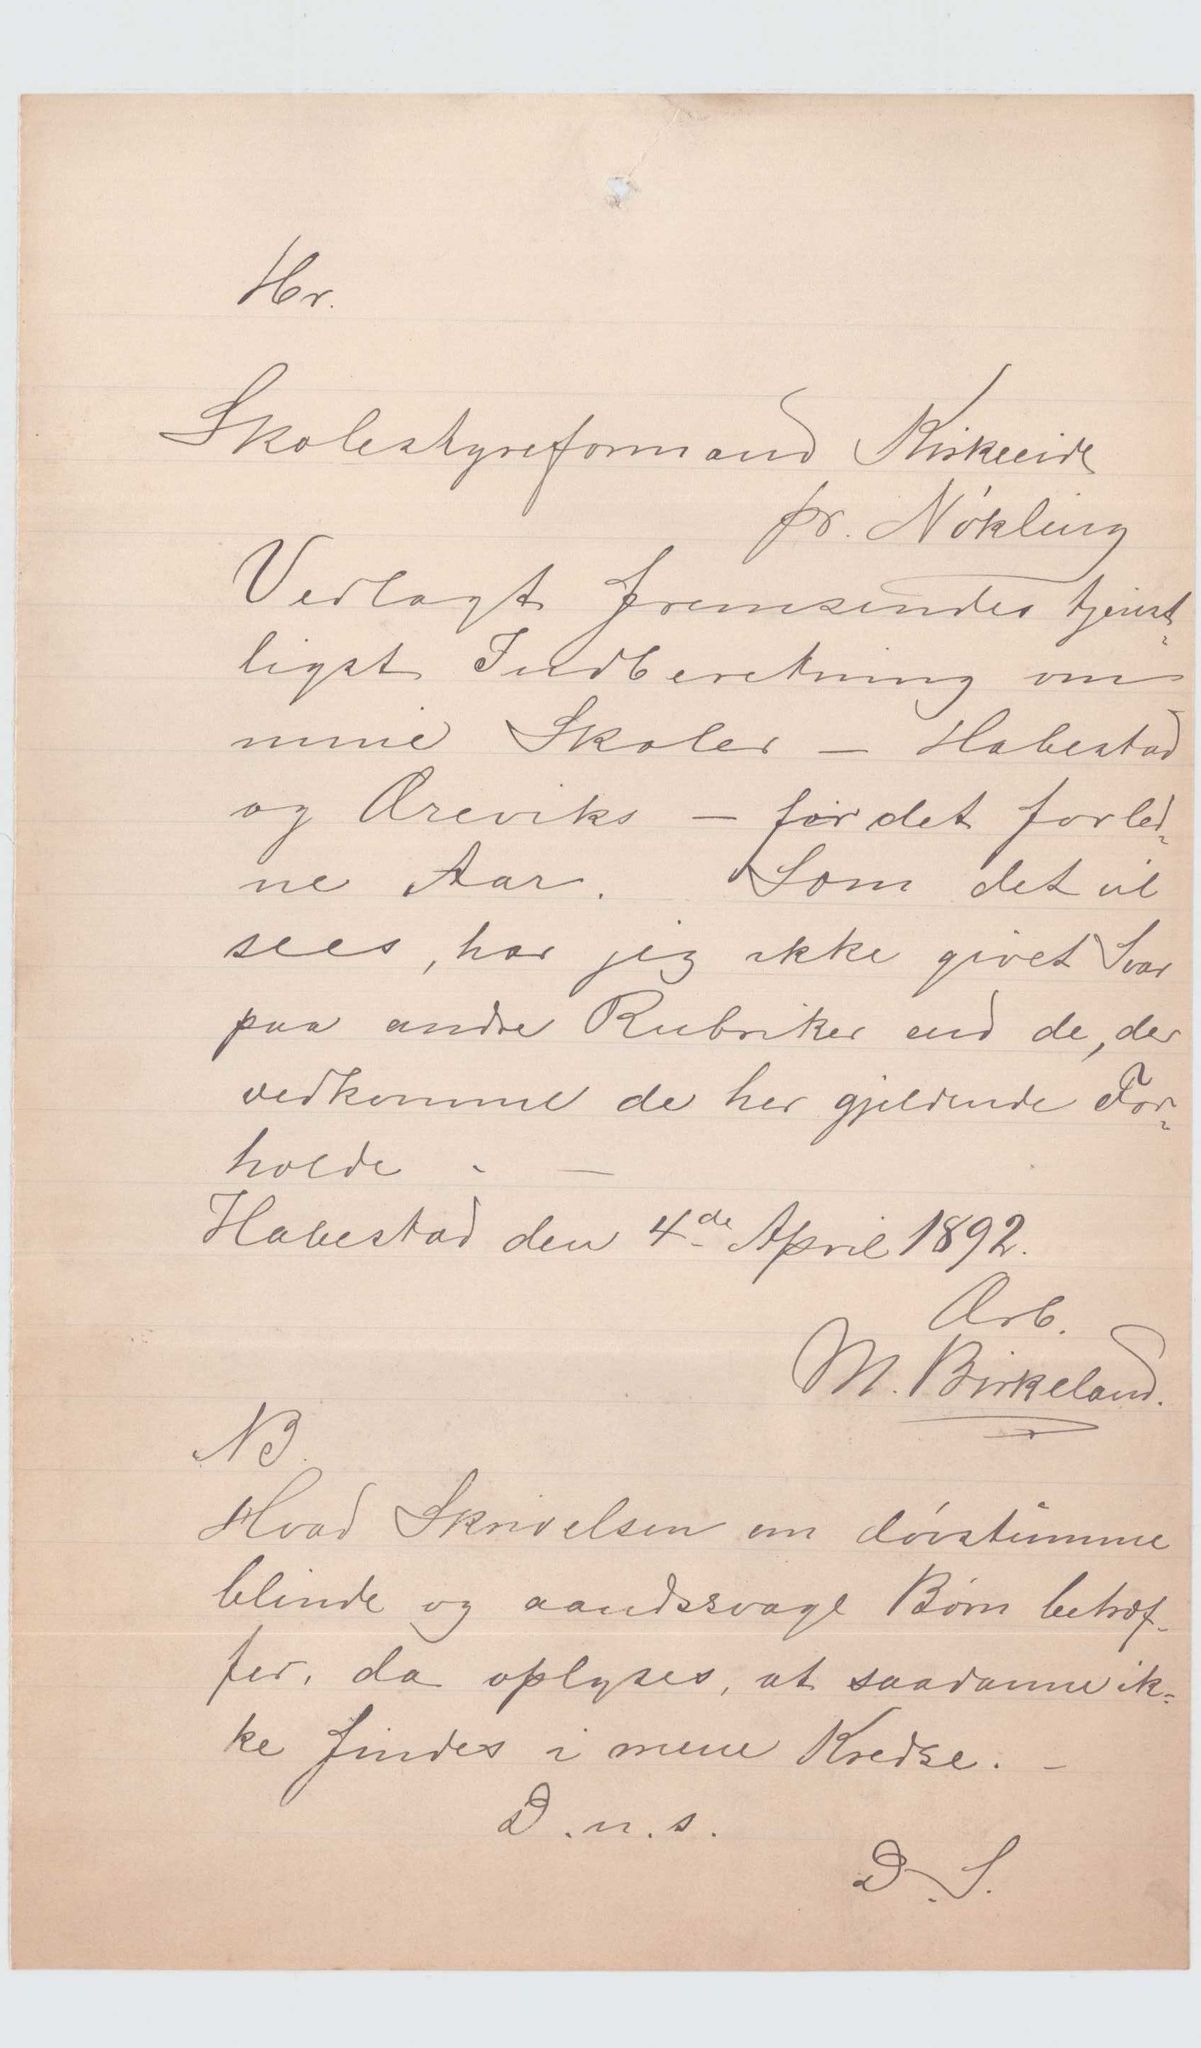 Hr.
Skolestyreformand Kirkeeide
pr. Nøkling
Vedlagt fremsendes tjenst-
ligst Indberetning om
mine Skoler – Habestad
og Æreviks – for det forled-
ne Aar. Som det vil
sees, har jeg ikke givet Svar
paa andre Rubriker end de, der
vedkomme de her gjeldende For-
holde. —
Habestad den 4de April 1892.
Ærb.
M. Birkeland.
NB.
Hvad Skrivelsen om døvstumme
blinde og aandssvage Børn betræf-
fer, da oplyses, at saadanne ik-
ke findes i mine Kredse. –
D.u.s.
D.S.